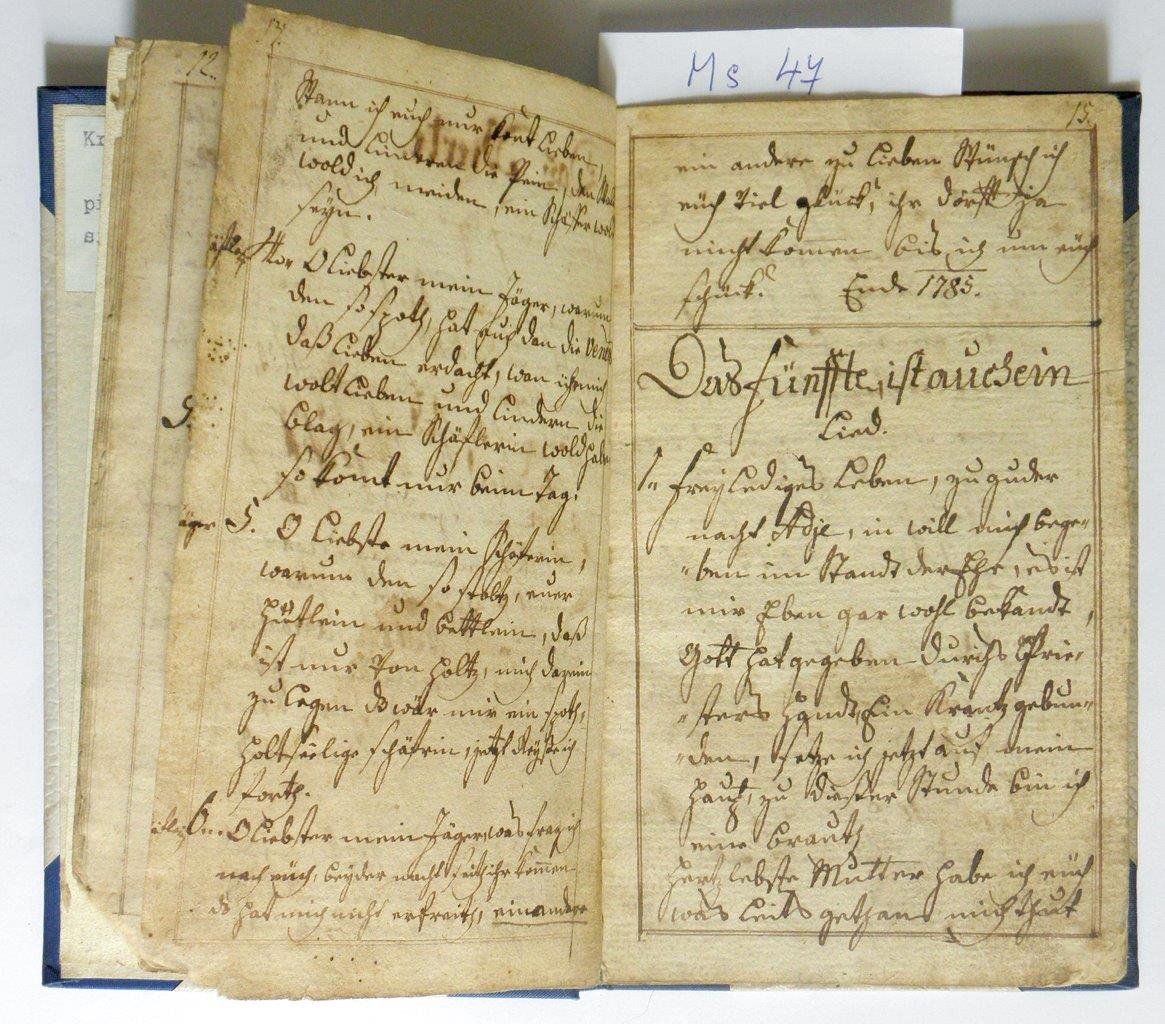 Ms 47
12.
Wann ich euch nur kont Lieben,
und Linteren die Pein, den
wold ich meiden, ein Schäffer wolt
seyn.
4. O Liebster mein Jäger, warum
den so spoth, hat euch dan die Venus
daß Lieben erdacht, wan ihr mich
wolt Lieben und Lindern die
blag, ein Schäflerin wold haben
so komt nur beim Tag.
Jäger 5. O Liebste mein Schäferin,
warum den so stoltz, euer
hütlein und bettlein, daß
ist nur Von holtz, mich darein
zu legen ds wär mir ein spoth,
holtseelige schäfrin, jetzt Reyse ich
forth.
6. O Liebster mein Jäger, was frag ich
nach euch, bey der nacht seith ihr kommen
ds hat mich nicht erfreith, ein andere
15.
ein andere zu Lieben Wünsch ich
euch Viel glück, ihr dörfft ja
nicht komen bis ich um euch
schück. Ende 1785.
Das fünffte, ist auch ein
Lied.
1. Frey Lediges Leben, zu guder
nacht Adje, in will mich bege-
ben im Standt der Ehe, es ist
mir Eben gar wohl bekandt,
Gott hat gegeben durchs Prie-
sters händt, Ein Krantz gebun-
den, setze ich jetzt auf mein
haupt, zu dieser Stunde bin ich
eine brauth
hertzlebste Mutter habe ich euch
was Leits gethan mich thut